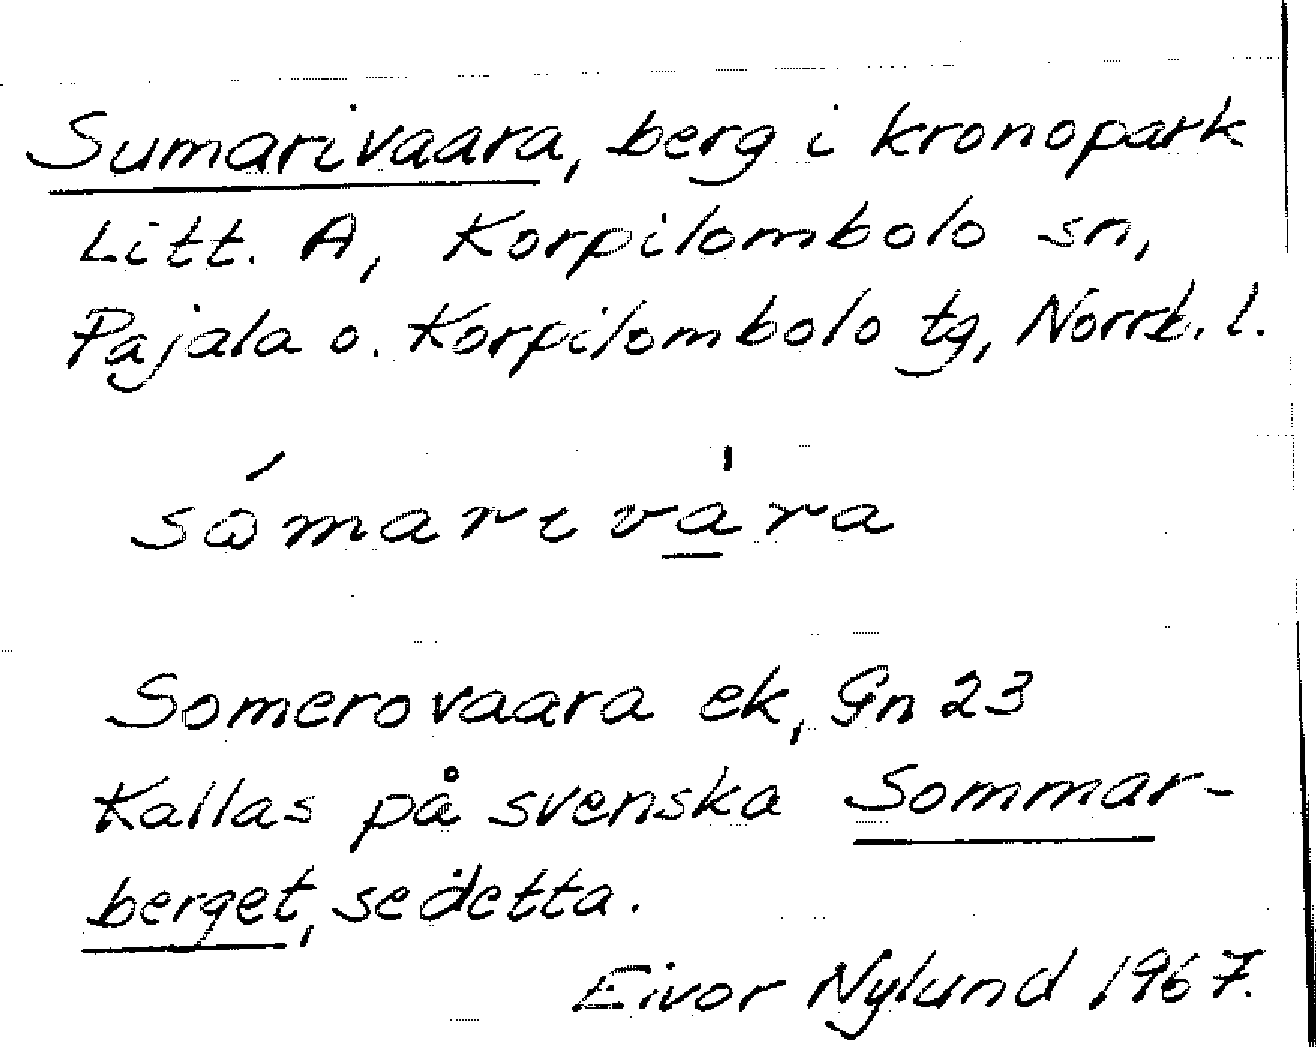 Sumarivaara, berg i kronopark
Litt. A, Korpilombolo sn,
Pajala o. Korpilombolo tg, Norrb. l.
Somerovaara ek, Gn 23
Kallas på svenska Sommar-
berget, se detta.
Eivor Nylund 1967.